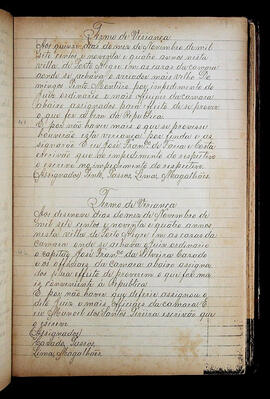 Termo de Veriança
Aos quinze dias do mez de Novembro de mil
sete centos e noventa e quatro annos nesta
villa de Porto Alegre em as cazas da camara
aonde se achava o vereador mais velho Do-
mingos Monteiro por impedimento do
Juiz ordinario e mais officiaes da camara
abaixo assignados para effeito de se prover
o que for bem da Republica
E por não haver mais o que se provesse
houverão esta veriança por finda e as-
signarão E eu José Fran.co de Faria e Costa
escrivão que no impedimento do respectivo
o escrevi
Assignados Lima, Magalhães
Termo de Veriança
Aos desenove dias do mez de Novembro de
mil sete centos e noventa e quatro annos,
nesta villa de Porto Alegre em as cazas da
camara onde se achava o Juiz ordinario
o capitão José Fran.co da Silveira Cazado
e os officiaes da camara abaixo assigna-
dos para effeito de proverem o que fosse ma-
is conveniente á Republica
E por não haver que deferir assignou o
dito Juiz e mais officiaes da camara E
eu Manoel dos Santos Pereira escrivão que
o escrevi
Assignados
Cazado, Passos
Lima, Magalhães